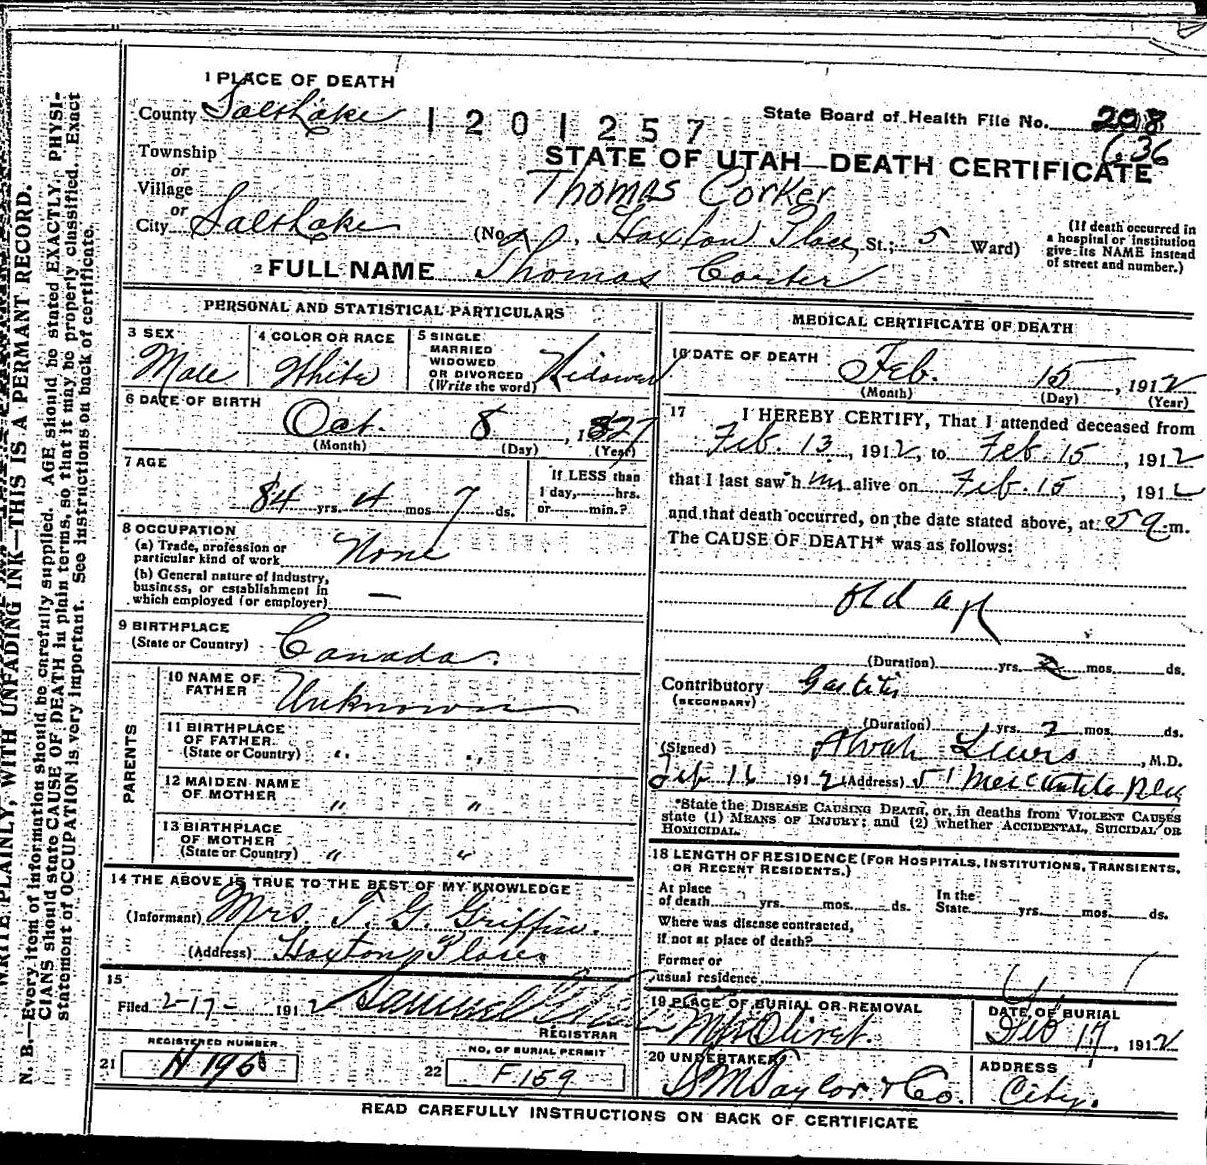 1 PLACE OF DEATH
County Salt Lake
1201257
State Board of Health File No. 208
636
Township
or
Village
or
City Salt Lake
STATE OF UTAH—DEATH CERTIFICATE
Thomas Corker
(No. Hoxton Place, St.; 5 Ward)
(If death occurred in a hospital or institution give its NAME instead of street and number.)
2 FULL NAME Thomas Corker
PERSONAL AND STATISTICAL PARTICULARS
3 SEX
Male
4 COLOR OR RACE
White
5 SINGLE
MARRIED
WIDOWED
OR DIVORCED
(Write the word) Widower
6 DATE OF BIRTH
Oct. 8, 1827
(Month) (Day) (Year)
7 AGE
84 yrs. 4 mos 7 ds.
If LESS than
1 day, hrs.
or min.?
8 OCCUPATION
(a) Trade, profession or
particular kind of work None
(b) General nature of Industry,
business, or establishment in
which employed (or employer) —
9 BIRTHPLACE
(State or Country) Canada.
PARENTS
10 NAME OF
FATHER Unknown
11 BIRTHPLACE
OF FATHER
(State or Country) " "
12 MAIDEN NAME
OF MOTHER " "
13 BIRTHPLACE
OF MOTHER
(State or Country) " "
14 THE ABOVE IS TRUE TO THE BEST OF MY KNOWLEDGE
(Informant) Mrs. T. G. Griffin.
(Address) Hoxton Place
15
Filed 2-17- 1912 Samuel
REGISTRAR
REGISTERED NUMBER
21 H 195
NO. OF BURIAL PERMIT
22 F 159
MEDICAL CERTIFICATE OF DEATH
16 DATE OF DEATH
Feb. 15, 1912
(Month) (Day) (Year)
17 I HEREBY CERTIFY, That I attended deceased from
Feb. 13, 1912, to Feb. 15, 1912
that I last saw him alive on Feb. 15, 1912
and that death occurred, on the date stated above, at 5 a.m.
The CAUSE OF DEATH* was as follows:
old age
(Duration) yrs. 2 mos. ds.
Contributory Gastitis
(SECONDARY)
(Duration) yrs. 2 mos. ds.
(Signed) Alvah Lewis, M.D.
Feb 16 1912 (Address) 51 Mercantile Blk
*State the DISEASE CAUSING DEATH, or, in deaths from VIOLENT CAUSES
state (1) MEANS OF INJURY; and (2) whether ACCIDENTAL, SUICIDAL OR
HOMICIDAL.
18 LENGTH OF RESIDENCE (FOR HOSPITALS, INSTITUTIONS, TRANSIENTS,
OR RECENT RESIDENTS.)
At place
of death yrs. mos. ds.
In the
State yrs. mos. ds.
Where was disease contracted,
if not at place of death?
Former or
usual residence
19 PLACE OF BURIAL OR REMOVAL
Mt. Olivet.
DATE OF BURIAL
Feb 17, 1912
20 UNDERTAKER
S M Taylor & Co.
ADDRESS
City.
READ CAREFULLY INSTRUCTIONS ON BACK OF CERTIFICATE
WRITE PLAINLY, WITH UNFADING INK—THIS IS A PERMANT RECORD.
N. B.—Every item of information should be carefully supplied. AGE should be stated EXACTLY. PHYSI-
CIANS should state CAUSE OF DEATH in plain terms, so that it may be properly classified. Exact
statement of OCCUPATION is very important. See instructions on back of certificate.